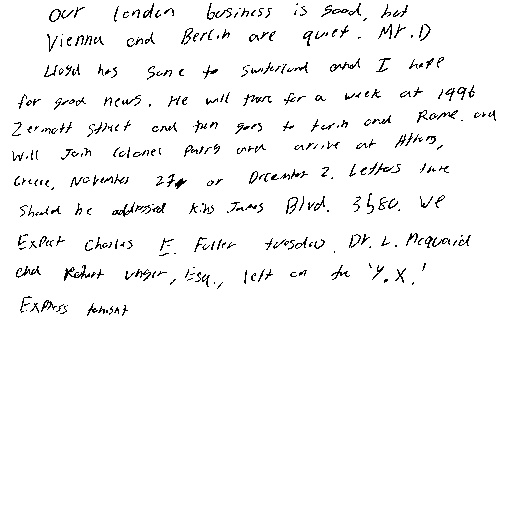 Our london business is good, but
Vienna and Berlin are quiet. Mr. D
Lloyd has gone to Switzerland and I hope
for good news. He will there for a week at 1996
Zermott Street and then goes to turin and Rome. and
will Join Colonel Parry and arrive at Athens,
Greece, November 27 or December 2. Letters there
Should be addressed King James Blvd. 3580. We
Expect Charles E. Fuller tuesday. Dr. L. Mcquaid
and Robert unger, Esq., left on the 'Y.X.'
Express tonight